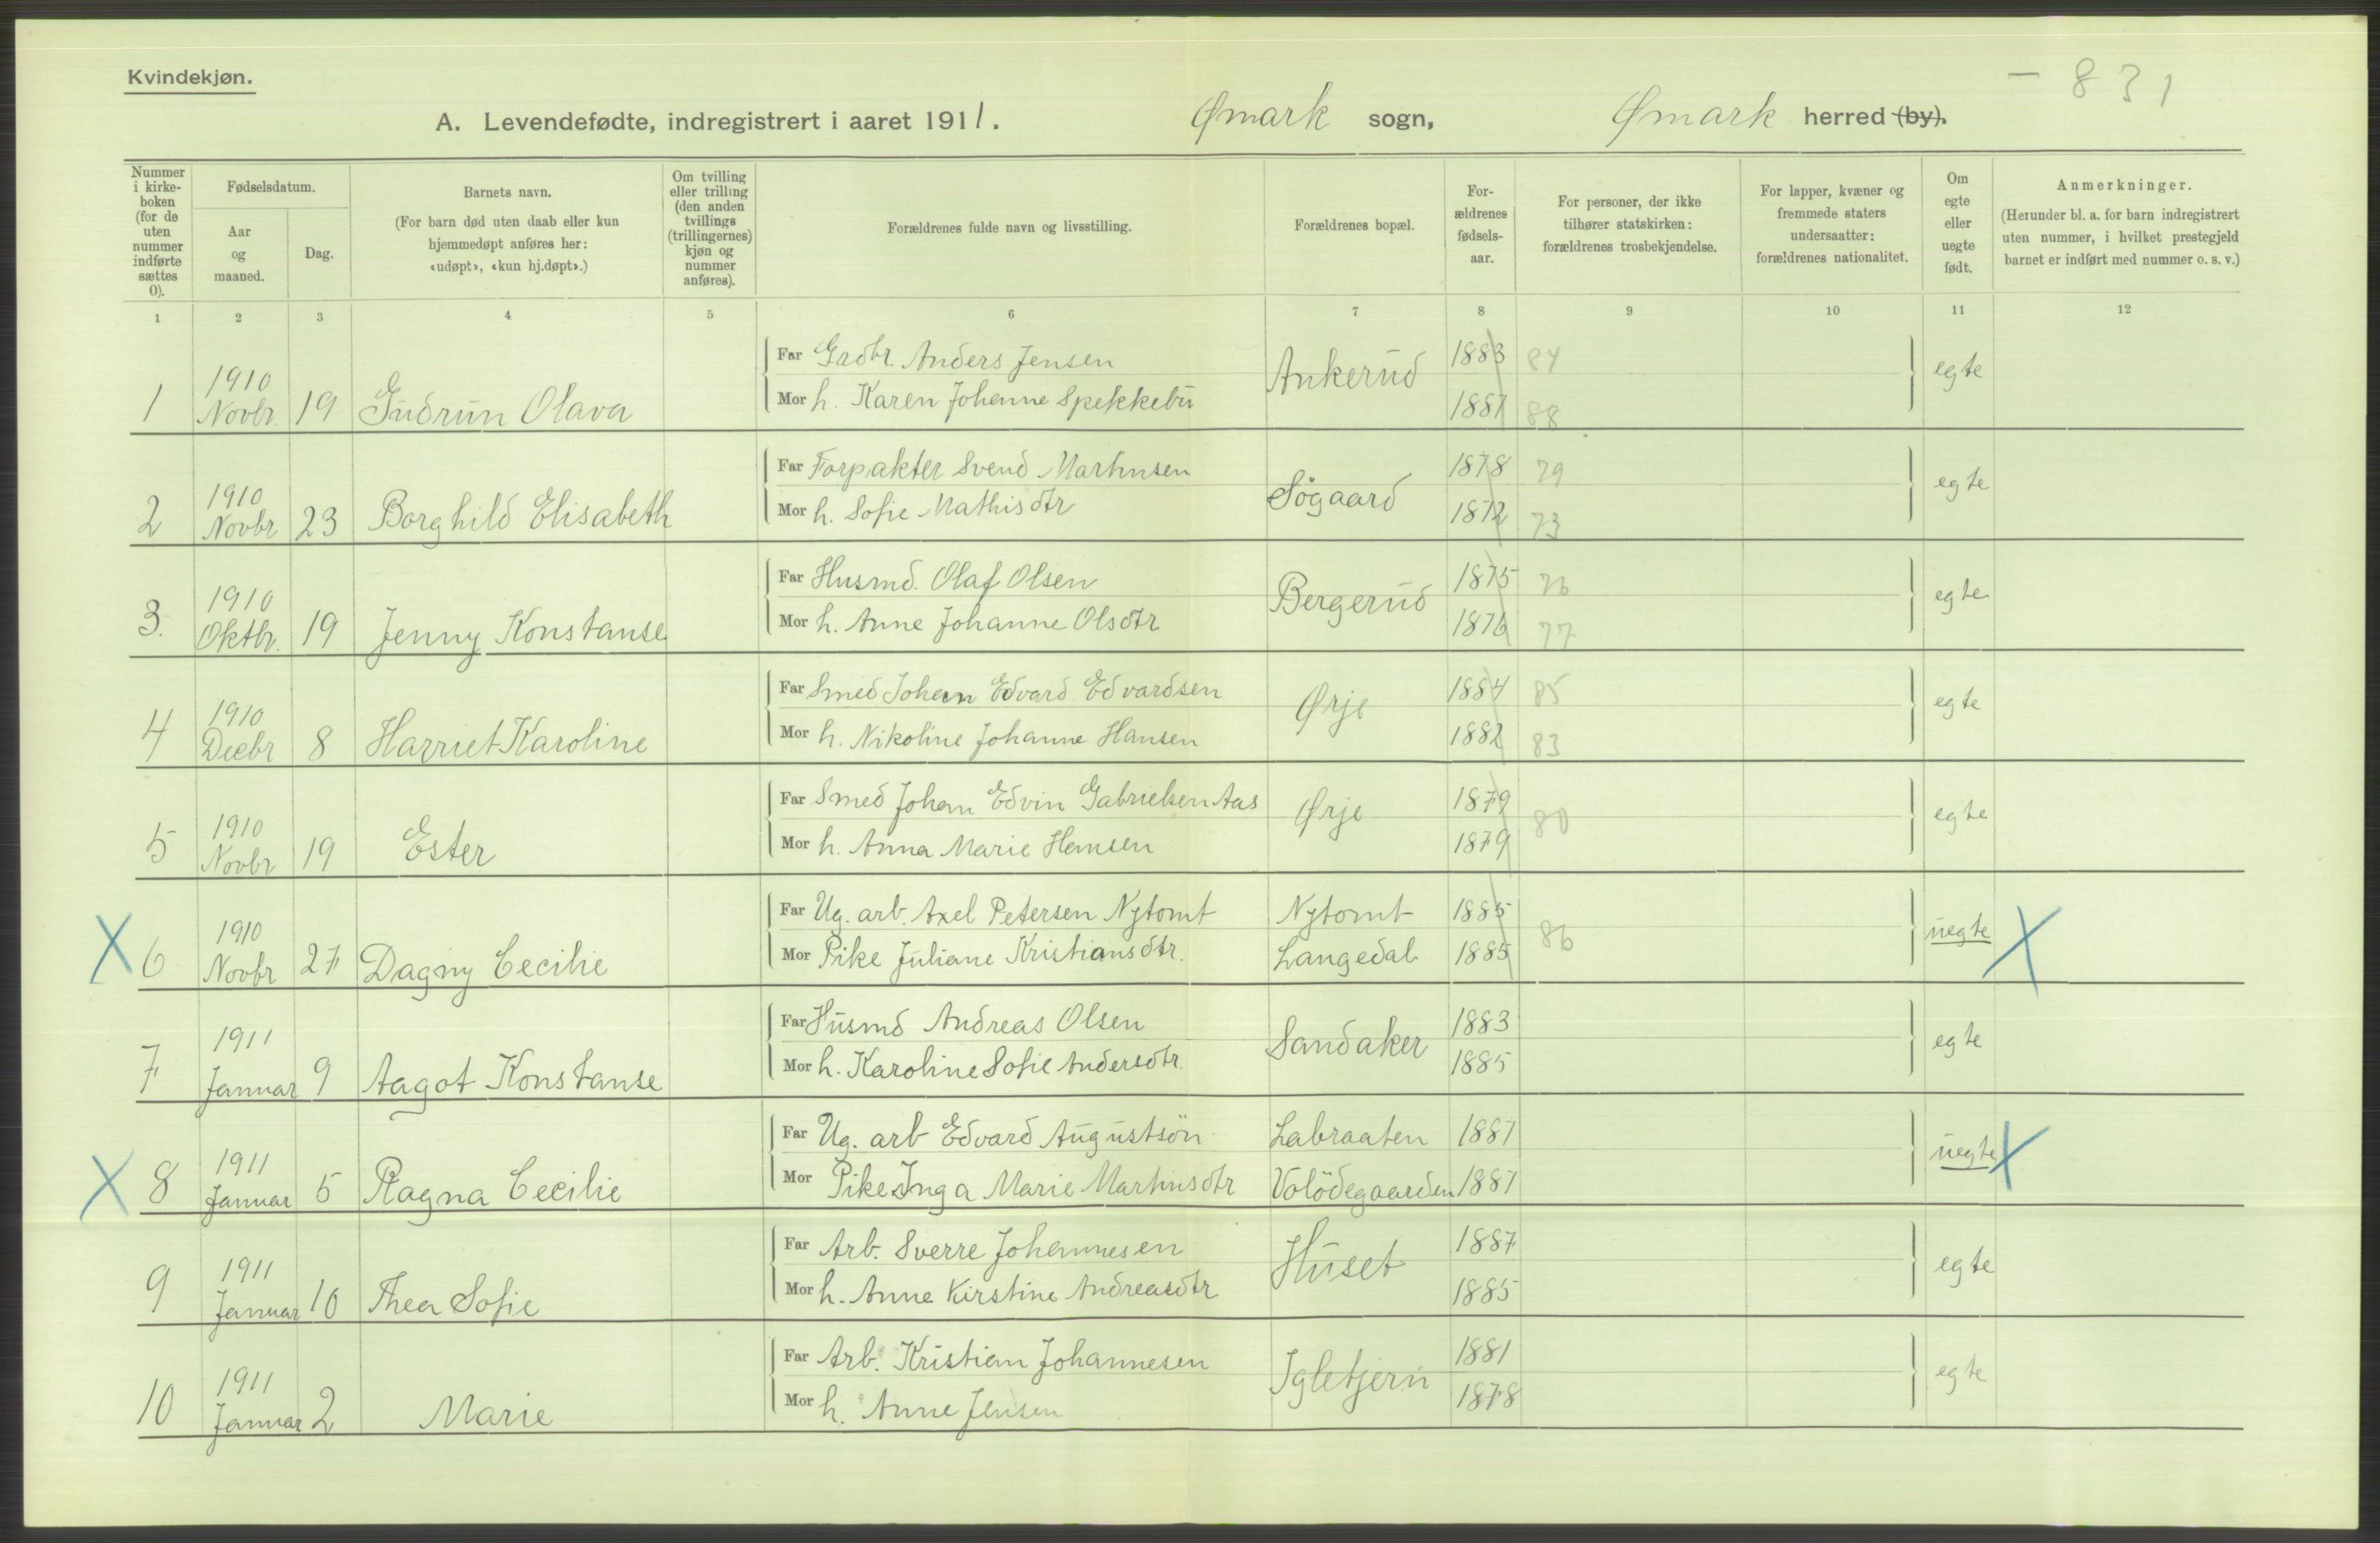 Kvindekjøn.
- 831
A. Levendefødte, indregistrert i aaret 1911. Ømark sogn, Ømark herred (by).
Nummer i kirke-boken (for de uten nummer indførte sættes 0).
Fødselsdatum.
Aar og maaned.
Dag.
Barnets navn.
(For barn død uten daab eller kun hjemmedøpt anføres her: «udøpt», «kun hj.døpt».)
Om tvilling eller trilling (den anden tvillings (trillingernes) kjøn og nummer anføres).
Forældrenes fulde navn og livsstilling.
Forældrenes bopæl.
For-ældrenes fødsels-aar.
For personer, der ikke tilhører statskirken: forældrenes trosbekjendelse.
For lapper, kvæner og fremmede staters undersaatter: forældrenes nationalitet.
Om egte eller uegte født.
Anmerkninger.
(Herunder bl. a. for barn indregistrert uten nummer, i hvilket prestegjeld barnet er indført med nummer o. s. v.)
1 2 3 4 5 6 7 8 9 10 11 12
Far Grdbr. Anders Jensen Ankerud 1883 84 egte
1 1910 Novbr. 19 Gudrun Olava
Mor h. Karen Johanne Spekkebu 1887 88
Far Forpakter Svend Martinsen Sögaard 1878 79 egte
2 1910 Novbr 23 Borghild Elisabeth
Mor h. Sofie Mathisdtr 1872 73
Far Husmd. Olaf Olsen Bergerud 1875 76 egte
3. 1910 Oktbr. 19 Jenny Konstanse
Mor h. Anne Johanne Olsdtr 1876 77
Far Smed Johan Edvard Edvardsen Ørje 1884 85 egte
4 1910 Decbr 8 Harriet Karoline
Mor h. Nikoline Johanne Hansen 1882 83
Far Smed Johan Edvin Gabrielsen Aas Ørje 1879 80 egte
5 1910 Novbr 19 Ester
Mor h. Anna Marie Hansen 1879
Far Ug. arb. Axel Petersen Nytomt Nytomt 1885 86 uegte X
X 6 1910 Novbr 27 Dagny Cecilie
Mor Pike Juliane Kristiansdtr. Langedal 1885
Far Husmd Andreas Olsen Sandaker 1883 egte
7 1911 Januar 9 Aagot Konstanse
Mor h. Karoline Sofie Andersdtr. 1885
Far Ug. arb Edvard Augustsön Labraaten 1887 uegte X
X 8 1911 Januar 5 Ragna Cecilie
Mor Pike Inga Marie Martinsdtr Volödegaarden 1887
Far Arb. Sverre Johannesen Huset 1887 egte
9 1911 Januar 10 Thea Sofie
Mor h. Anne Kirstine Andreasdtr 1885
Far Arb. Kristian Johannesen Igletjern 1881 egte
10 1911 Januar 2 Marie
Mor h. Anne Jensen 1878